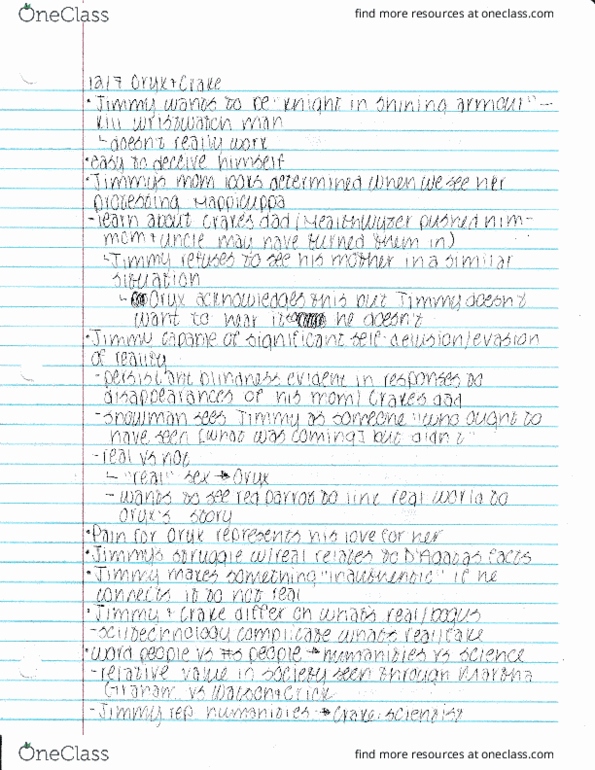 OneClass
find more resources at oneclass.com
12/7 Oryx + Crake
• Jimmy wants to be "knight in shining armour" -
kill wristwatch man
- doesn't really work
• easy to deceive himself
• Jimmy's mom looks determined when we see her
protesting Happicuppa
- learn about Crake's dad (Healthwyzer pushed him -
mom + uncle may have turned them in)
- Jimmy refuses to see his mother in a similar
situation
- Oryx acknowledges this but Jimmy doesn't
want to hear it he doesn't
• Jimmy capable of significant self-delusion/evasion
of reality
- persistant blindness evident in responses to
disappearances of his mom/Crake's dad
- Snowman sees Jimmy as someone "who ought to
have seen [what was coming] but didn't"
- real vs not
- "real" sex → Oryx
- wants to see red parrot to link real world to
Oryx's story
• Pain for Oryx represents his love for her
• Jimmy's struggle w/real relates to D'Agata's facts
• Jimmy makes something "inauthentic" if he
connects it to not real
• Jimmy + Crake differ on what's real/bogus
- sci/technology complicate what's real/fake
• word people vs #s people → humanities vs science
- relative value in society seen through Martha
Graham vs Watson + Crick
- Jimmy rep humanities → Crake: scientist
OneClass
find more resources at oneclass.com